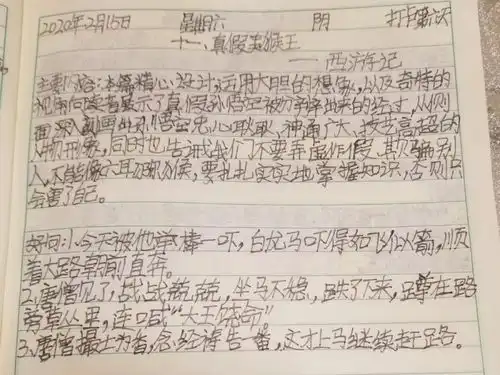 2020年2月15日 星期六 阴 打卡第六天
十一、真假美猴王
——西游记
主要内容:本篇精心设计,运用大胆的想象,以及奇特的
视角向读者展示了真假孙悟空被分辨出来的经过,从侧
面深入刻画出孙悟空忠心耿耿、神通广大、技艺高超的
人物形象,同时也告诫我们不要弄虚作假、欺骗别
人,不能像六耳猕猴,要扎扎实实地掌握知识,否则只
会害了自己。
好句:1、今天被他举棒一吓,白龙马吓得如飞似箭,顺
着大路朝前直奔。
2、唐僧见了,战战兢兢,坐马不稳,跌了下来,蹲在路
旁草丛里,连喊“大王饶命”。
3、唐僧撮土为香,念经祷告一番,又才上马继续赶路。